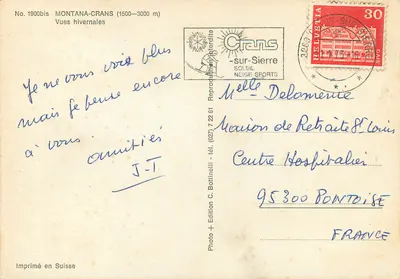 No. 1900bis MONTANA-CRANS (1500—3000 m)
Vues hivernales
Je ne vous vois plus
mais je pense encore
à vous
amitiés
J-T
Imprimé en Suisse
Photo + Edition C. Bottinelli - tél. (027) 7 22 61 Reproduction interdite
Crans
-sur-Sierre
SOLEIL
NEIGE SPORTS
HELVETIA
30
Melle Delomenie
Maison de Retraite St Louis
Centre Hospitalier
95300 PONTOISE
FRANCE